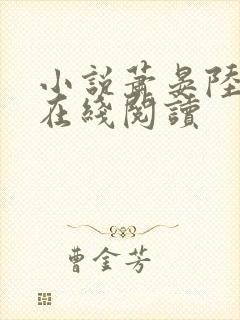 小說蕭晏陸
在綫閱讀
曹金芳